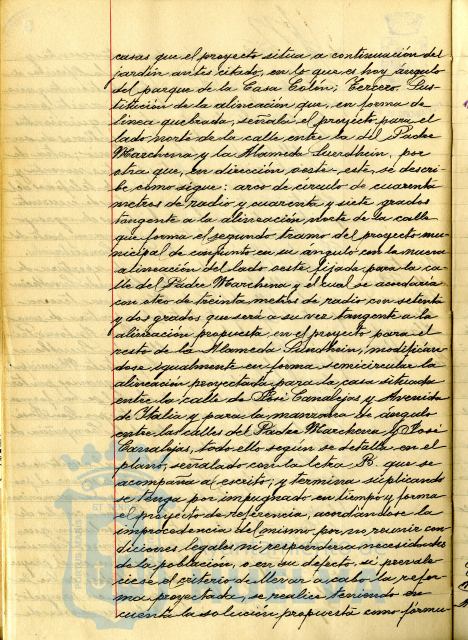 casas que el proyecto situa a continuación del
jardín antes citado, en lo que es hoy ángulo
del parque de la Casa Colón; Tercero. Sus-
titución de la alineación que, en forma de
linea quebrada, señala el proyecto para el
lado norte de la calle entre la del Padre
Marchena y la Alameda Sundhein, por
otra que, en dirección oeste-este, se descri-
be como sigue: arco de círculo de cuarenta
metros de radio y cuarenta y siete grados
tangente a la alineación norte de la calle
que forma el segundo tramo del proyecto mu-
nicipal de conjunto en su ángulo con la nueva
alineación del lado oeste fijada para la ca-
lle del Padre Marchena y el cual se acordaría
con otro de metros de radio con setenta
y dos grados que será a su vez tangente a la
alineación propuesta en el proyecto para el
resto de la Alameda Sundhein, modificán-
dose igualmente en forma semicircular la
alineación proyectada para la casa situada
entre la calle de José Canalejas y Avenida
de Italia y para la manzana de ángulo
entre las calles del Padre Marchena y José
Canalejas, todo ello según se detalla en el
plano, señalado con la letra B. que se
acompaña al escrito; y termina suplicando
se tenga por impugnado en tiempo y forma
el proyecto de referencia, acordándose la
improcedencia del mismo por no reunir con-
diciones legales ni responder a necesidades
de la población, o en su defecto si prevale-
ciese el criterio de llevar a cabo la refor-
ma proyectada, se realice teniendo en
cuenta la solución propuesta como fórmu-